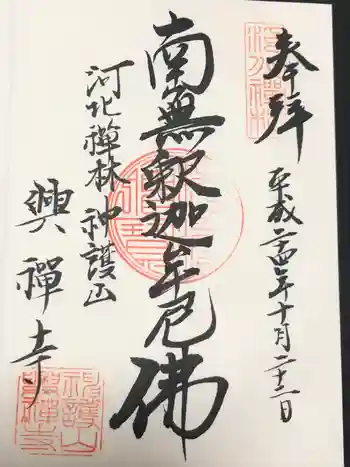 奉拝
平成二十四年十月二十二日
南無釈迦牟尼佛
河北禅林 神護山
興禅寺
神護山
興禅寺